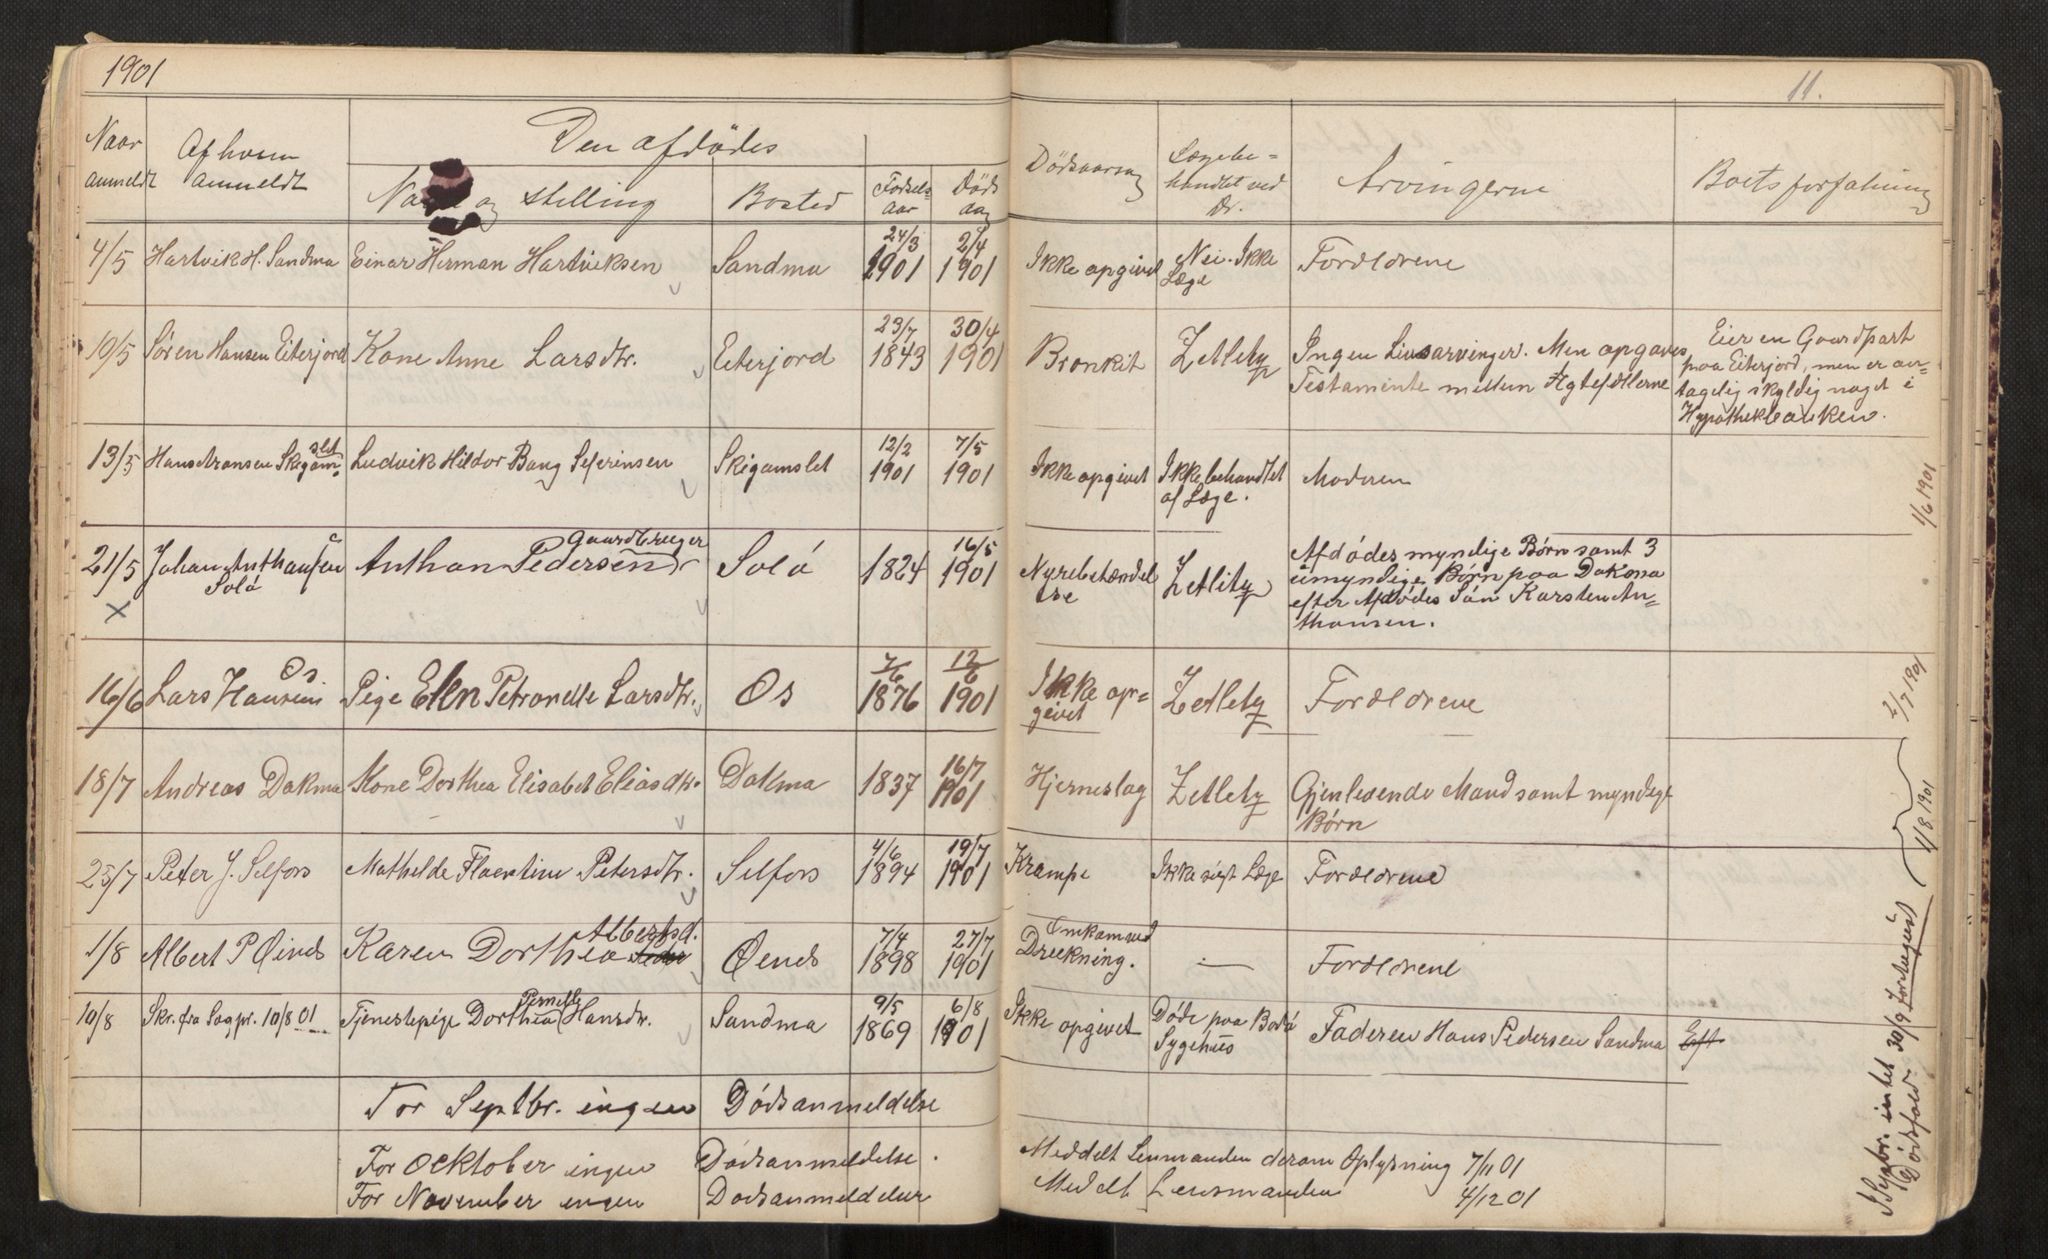 1901
11.
Naar anmeldt
Af hvem anmeldt
Den afdödes
og stilling
Bosted
Fødsels aar
Døds dag
Dödsaarsag
Lægebe=
handlet ved
Dr.
Arvingerne
Boets forfatning
4/5 Hartvik H. Sandma Einar Herman Hartviksen Sandma 24/3 1901 2/4 1901 Ikke opgivet Nei. Ikke Læge Forældrene
10/5 Søren Hansen Eiterjord Kone Anne Larsdtr. Eiterjord 23/7 1843 30/4 1901 Bronkit Zetlitz Ingen Livsarvinger. Men opgaves
Testamente mellem Ægtefællerne
Eier en Gaardpart
paa Eiterjord, men er an=
tagelig skyldig noget i
Hypothekbanken.
13/5 Hans Skigamslet Ludvik Hildor Bang Seferinsen Skigamslet 12/2 1901 7/5 1901 Ikke opgivet Ikke behandlet
af Læge. Moderen
1/6 1901
21/5 Johan Anthansen
Solö Anthon Pedersen Gaardbruger Solö 1824 16/5 1901 Nyrebetændel
se Zetlitz Afdødes myndige Børn samt 3
umyndige Børn paa Dakma
efter Afdødes Sön Karsten An=
thonsen.
X
16/6 Lars Hansen Os Pige Elen Petronelle Larsdtr. Os 7/6 1876 12/6 1901 Ikke op=
givet Zetlitz Forældrene
2/7 1901
18/7 Andreas Dakma Kone Dorthea Elisabet Eliasdtr. Dakma 1837 16/7 1901 Hjerneslag Zetlitz Gjenlevende Mand samt myndige
Børn
1/8 1901
23/7 Peter J. Selfors Mathilde Florentine Petersdtr. Selfors 4/6 1894 19/7 1901 Krampe Ikke søgt Læge Forældrene
1/8 Albert P Øines Karen Dorthea Albertsd. Øines 7/4 1898 27/7 1901 Omkom ved
Drukning. — Forældrene
10/8 Skr. fra Sogpr. 10/8 01 Tjenestepige Dorthea Pernelle Hansdtr. Sandma 9/5 1869 6/8 1901 Ikke opgivet Døde paa Bodö
Sygehus Faderen Hans Pedersen Sandma Eft
For Septbr. ingen Dödsanmeldelse
For Ocktober ingen Dødsanmeldelse. Meddelt Lensmanden derom Oplysning 7/11 01
For November ingen Dødsanmeldelser Medelt Lensmanden 4/12 01
I Septbr. intet 30/9
Dödsfald.